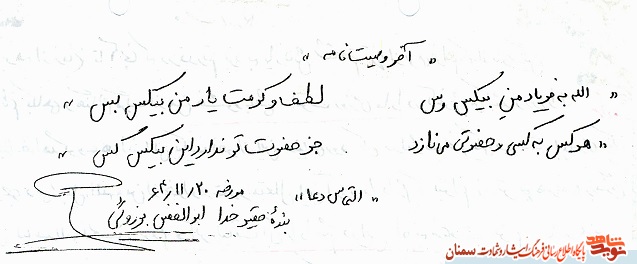 « آخر وصیتنامه »
« الله به فریاد من بیکس رس لطف و کرمت یار من بیکس بس »
« هر کس به کسی و حضرتی می نازد جز حضرت تو ندارد این بیکس کس »
« التماس دعا » مورخه ۶۴/۱۱/۲۰
بندهٔ حقیر خدا ابوالفضل
نوید شاهد
پایگاه اطلاع رسانی فرهنگ ایثار و شهادت سمنان